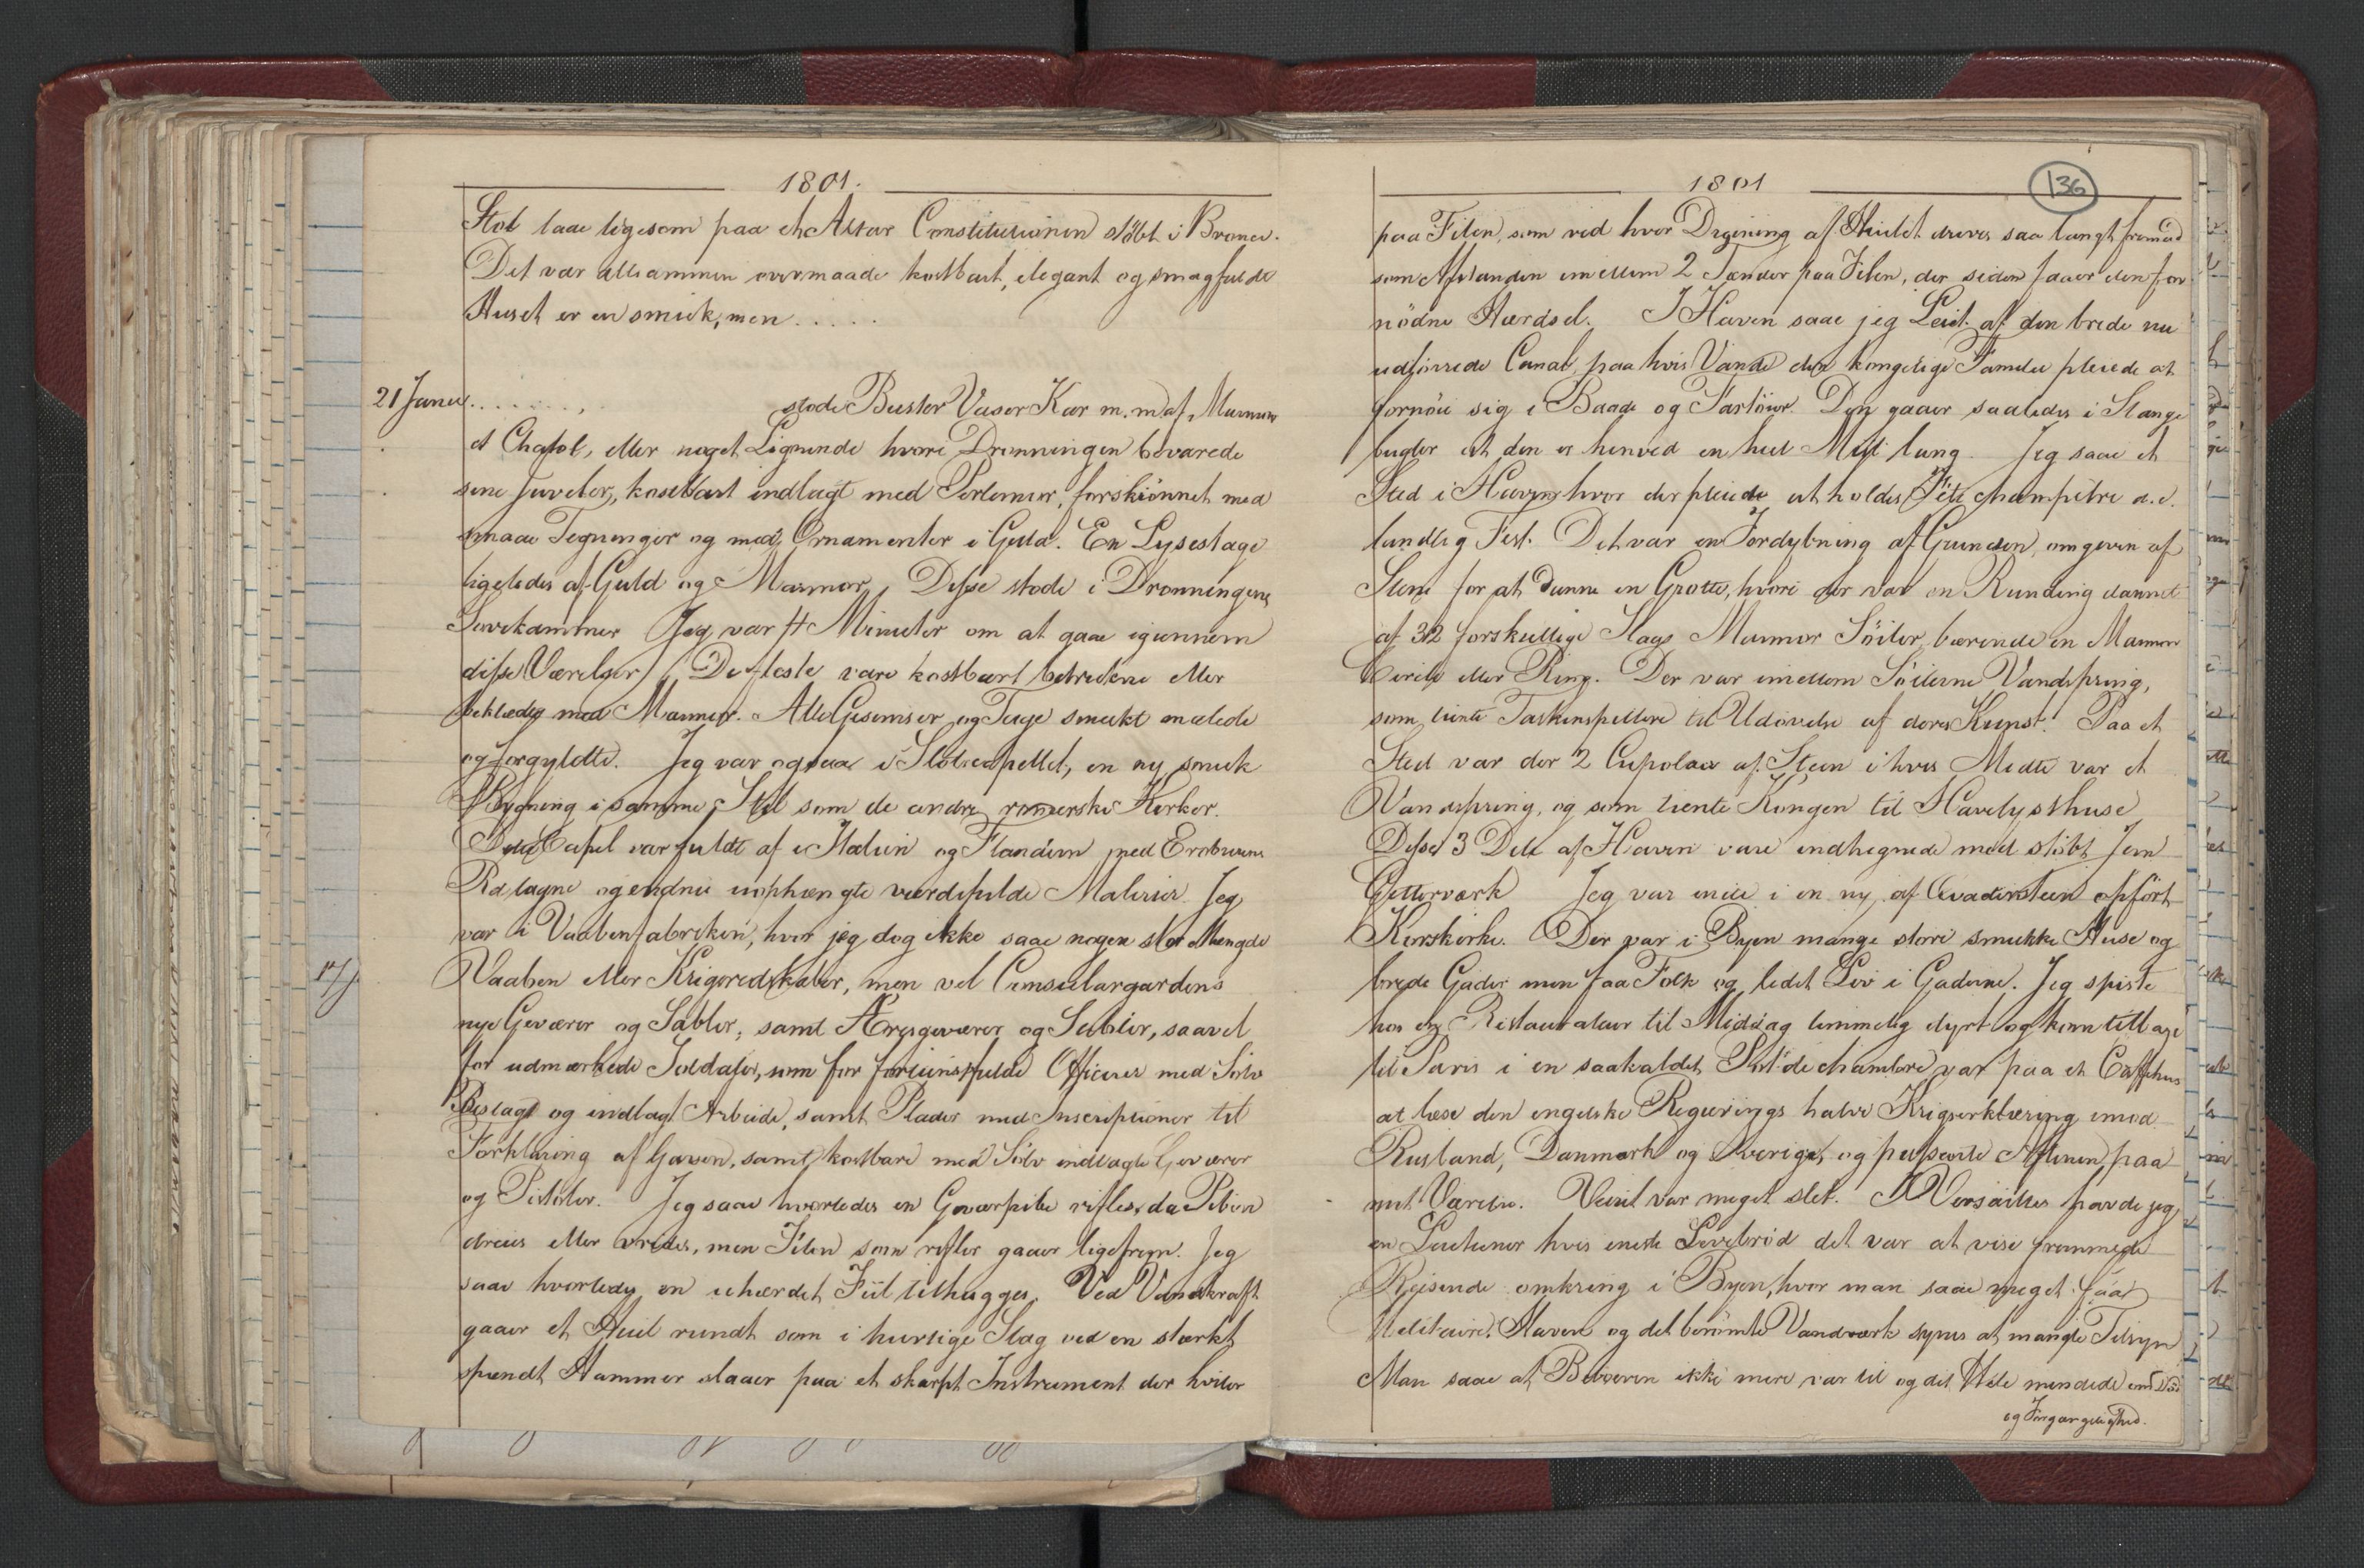 1801.
Stol laae ligesom paa et Altar Constitutionen stöbt i Bronce.
Det var altsammen overmaade kostbart, elegant og smagfuldt
Huset er en smuk, men . . . . .
21 Janu . . . . . . . stode Buster Vaser Kar m. m af Marmor
et Chatol, eller noget Lignende hvori Dronningen bevarede
sine Juveler, kostbart indlagt med Perlemor, forskiönnet med
smaae Tegninger og med Ornamenter i Guld. En Lysestage
ligeledes af Guld og Marmor, Disse stode i Dronningens
Sovekammer Jeg var 4 Minuter om at gaae igiennem
disse Værelser) De fleste vare kostbart betrukne eller
beklædte med Marmor. Alle Gesimser og Tage smukt malede
og forgyldte. Jeg var ogsaa i Slotscapellet, en ny smuk
Bygning i samme Stil som de andre romerske Kirker.
Dette Capel var fuldt af i Italien og Flandern ved Erobringen
Ratagne og endnu uophængte værdifulde Malerier. Jeg
var i Vaabenfabriken, hvor jeg dog ikke saae nogen stor Mængde
Vaaben eller Krigsredskaber, men vel Consulargardens
nye Geværer og Sabler, samt Æresgeværer og Sabler, saavel
for udmærkede Soldater, som for fortienstfulde Officerer med Sölv
Beslag og indlagt Arbeide, samt Plader med Inscriptioner til
Forklaring af Gaven, samt kostbare med Sölv indlagte Geværer
og Pistoler. Jeg saae hvorledes en Geværpibe rifles, da Piben
dreies eller vrides, men Filen som rifler gaaer ligefrem. Jeg
saae hvorledes en uhærdet Fiil tilhugges. Ved Vandkraft
gaaer et Hiul rundt som i hurtige Slag ved en stærkt
spændt Hammer slaaer paa et skarpt Instrument der hviler
1801
136
paa Filen, som ved hver Dreining af Hiulet drives saa langt fremad
som Afstanden imellem 2 Tænder paa Filen, der siden faaer den for
nödne Hærdsel. I Haven saae jeg Leiet af den brede nu
udtörrede Canal, paa hvis Vande den kongelige Familie pleiede at
fornöie sig i Baade og Fartöier. Den gaaer saaledes i Slange
bugter at den er henved en heel Miil lang. Jeg saae et
Sted i Haven hvor der pleiede at holdes Fête champêtre a. d.
landlig Fest. Det var en Fordybning af Grunden, omgiven af
Stene for at danne en Grotte, hvori der var en Runding dannet
af 32 forskiellige Slags Marmor Söiler, bærende en Marmor
Circel eller Ring. Der var imellem Söilerne Vandspring,
som tiente Taskenspillere til Udövelse af deres Kunst. Paa et
Sted var der 2 Cupolaer af Steen i hvis Midte var et
Vandspring, og som tiente Kongen til Havelysthuse
Disse 3 Dele af Haven vare indhegnede med stöbt Jern
Gitterværk Jeg var inde i en ny, af Qvadersteen opfört
Korskirke. Der var i Byen mange store smukke Huse og
brede Gader men faa Folk og lidet Liv i Gaderne. Jeg spiste
hos en Restaurateur til Middag temmelig dyrt og kom tilbage
til Paris i en saakaldet Pot de chambre, var paa et Caffehus
at læse den engelske Regierings halve Krigserklæring imod
Rusland, Danmark og Sverige, og passerte Aftenen paa
mit Værelse. Veiret var meget slet. I Versailles havde jeg
en Leietiener hvis eneste Levebröd det var at vise fremmede
Reisende omkring i Byen, hvor man saae meget faa
Militaire. Haven og det berömte Vandværk synes at mangle Tilsyn
Man saae at Beboeren ikke mere var til og det Hele mindede om Död
og Forgængelighed.